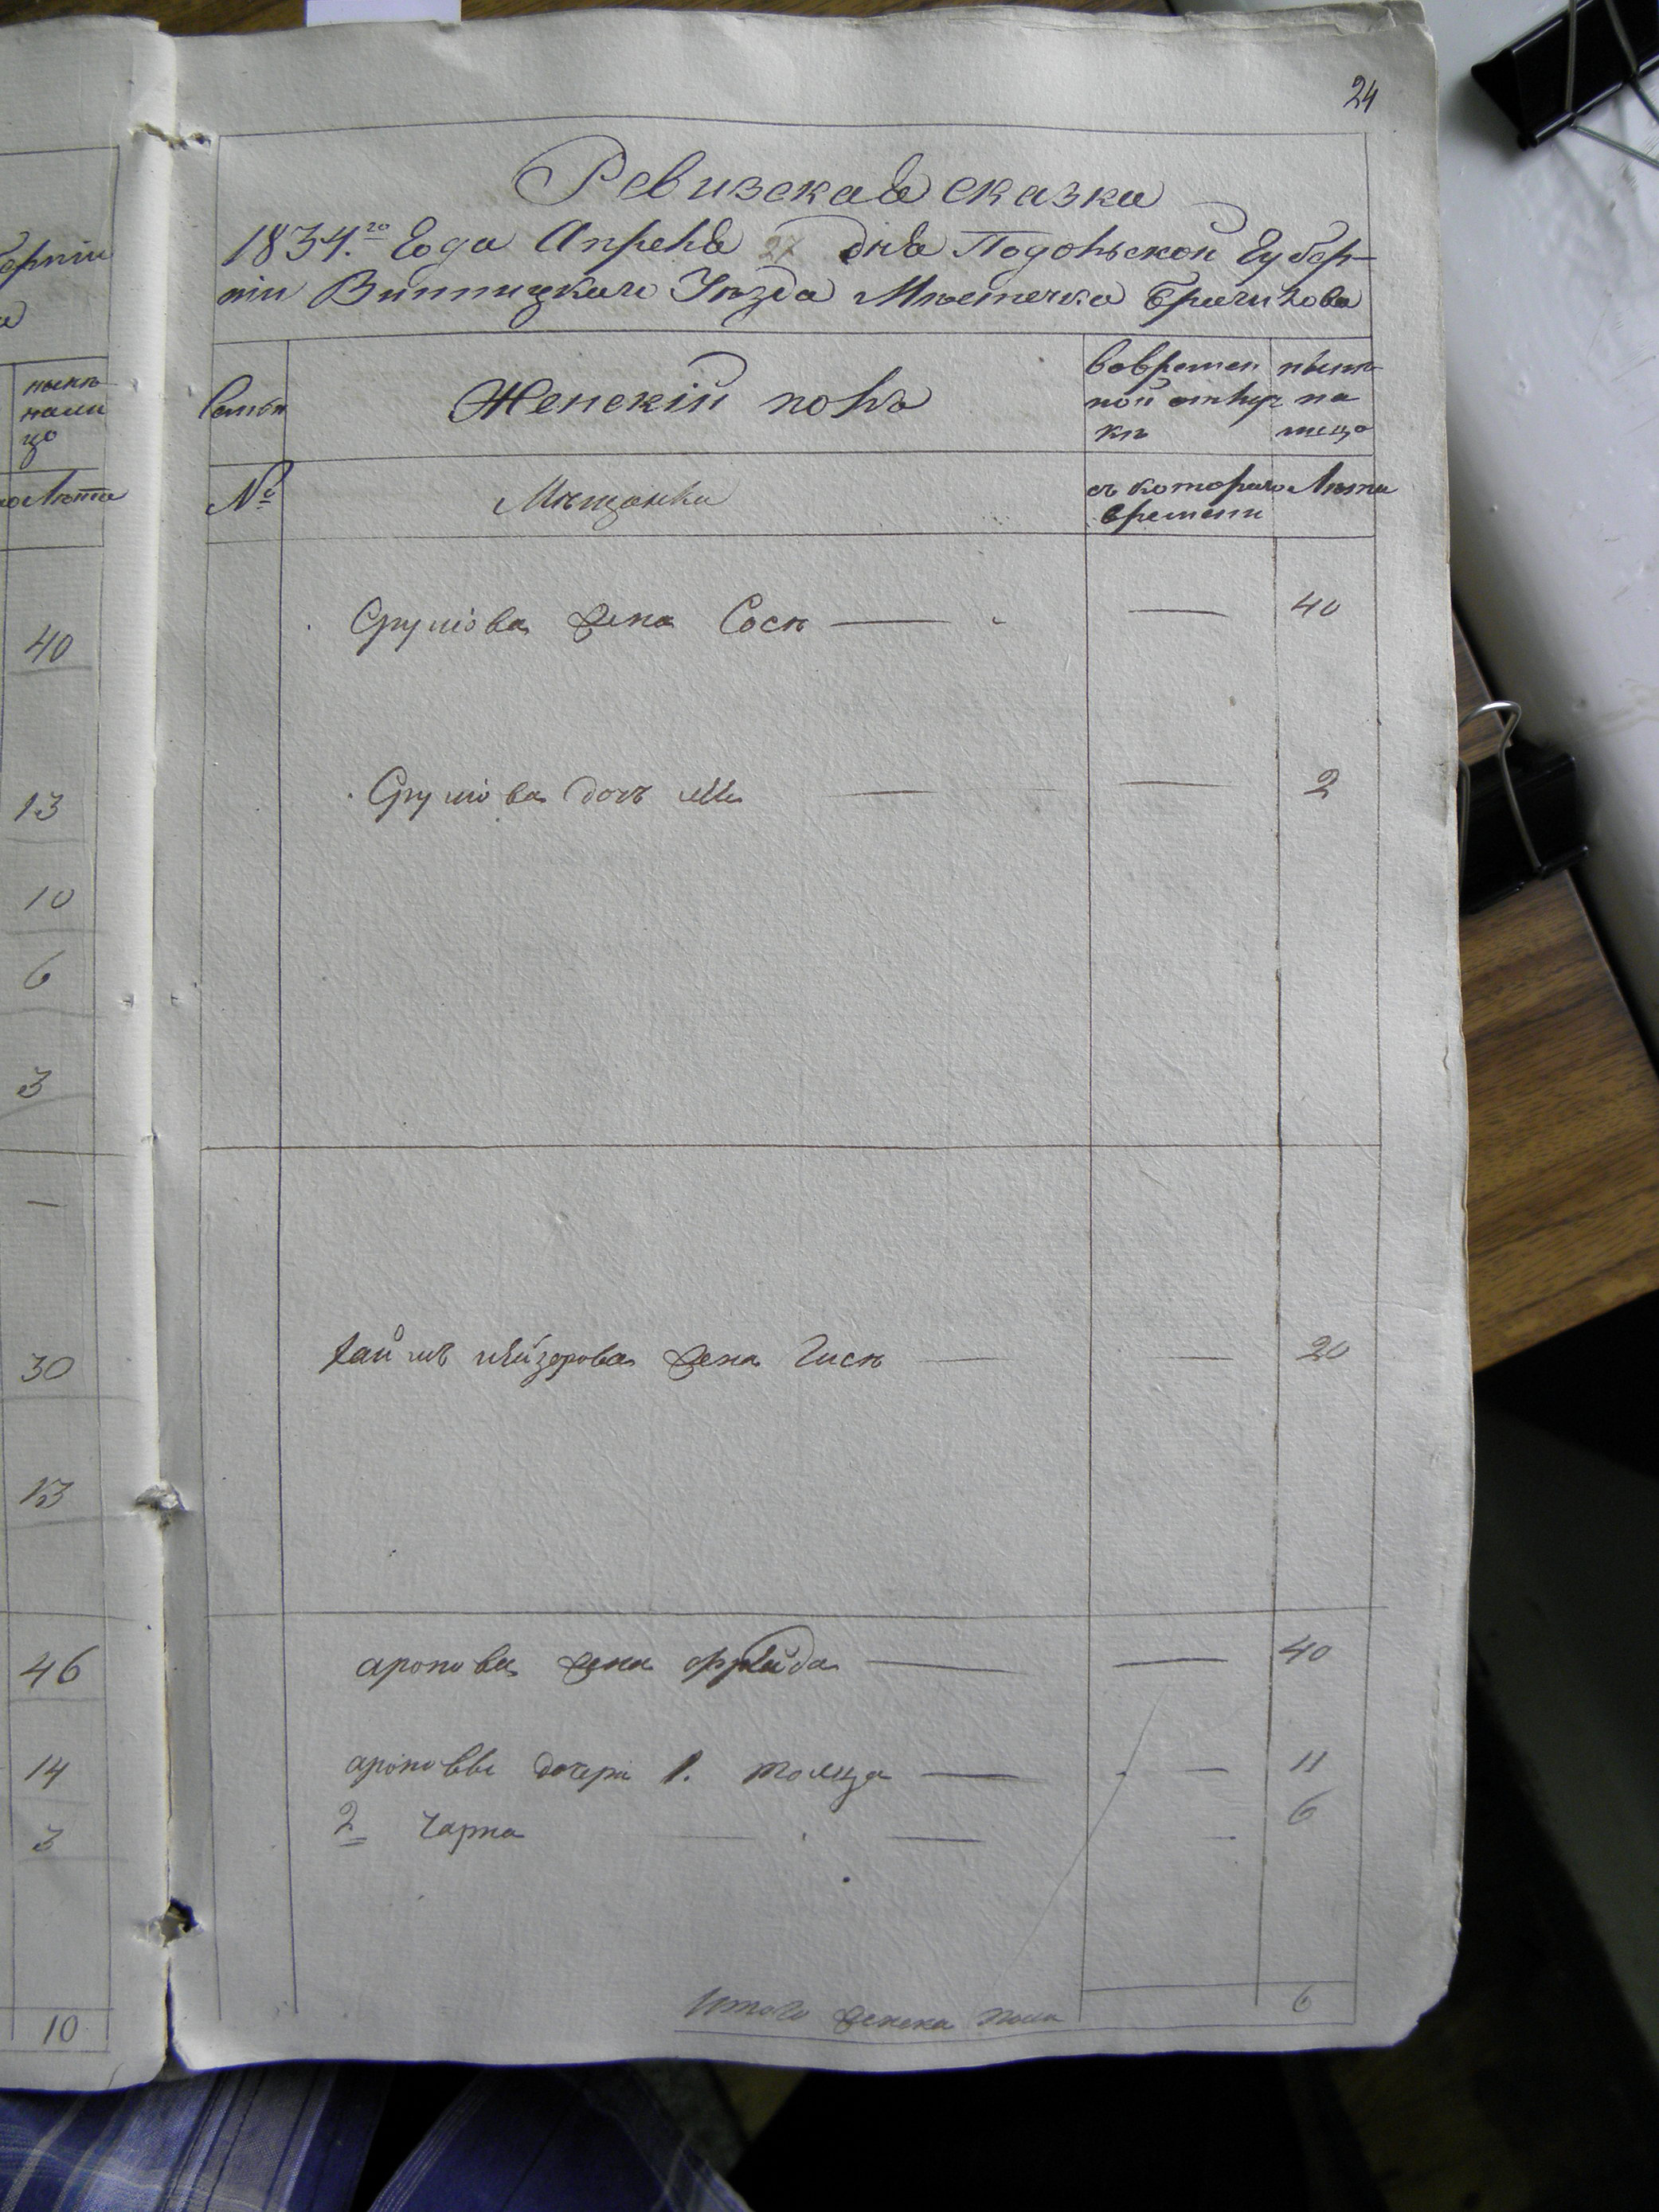 24
Ревизская сказка
1834.го Года Апреля 27 дня Подольской Губер-
нии Винницкаго Уѣзда Мѣстечка Браилова
Семьи
Женскій полъ
во времен
ной отлуч
кѣ
нынѣ
на
лицо
№
Мѣщанки
съ котораго
времени
Лѣта
Срулiова жена Сося 40
Срулiова дочь 2
жена Гися 20
аронова жена фрейда 40
ароновы дочери 1. 11
2 Чарна 6
Итого женска пола 6
ерніи
нынѣ
нали
цо
Лѣта
40
13
10
6
3
30
13
46
14
3
10